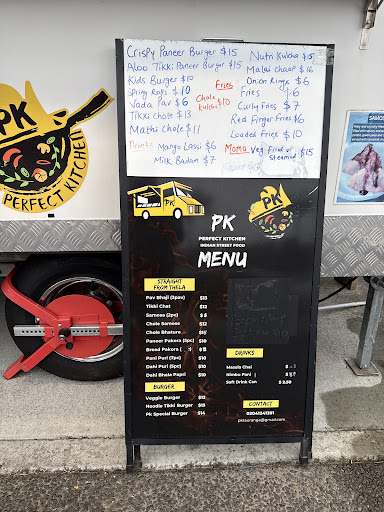 PK
PERFECT KITCHEN
Crispy Paneer Burger $15
Aloo Tikki Paneer Burger $15
Kids Burger $10
Spring Rolls $10
Vada Pav $6
Tikki Chole $13
Mathi Chole $11
Drinks Mango Lassi $6
Milk Badam $7
Fries
Chole Kulcha $10
Nutri Kulcha $15
Malai Chaap $16
Onion Rings $6
Fries $6
Curly Fries $7
Red Finger Fries $6
Loaded Fries $10
Momo Veg Fried or Steamed $15
SAMOS
PK
PK
PK
PERFECT KITCHEN
INDIAN STREET FOOD
MENU
STRAIGHT FROM THELA
Pav Bhaji (3pav) $13
Tikki Chat $12
Samosa (2pc) $ 6
Chole Samosa $12
Chole Bhature $15
Paneer Pakora (5pc) $10
Bread Pakora $
Pani Puri (7pc) $10
Dahi Puri (5pc) $10
Dahi Bhala Papdi $10
BURGER
Veggie Burger $12
Noodle Tikki Burger $13
PK Special Burger $14
DRINKS
Masala Chai $
Nimbu Pani $
Soft Drink Can $ 2.50
CONTACT
02041241381